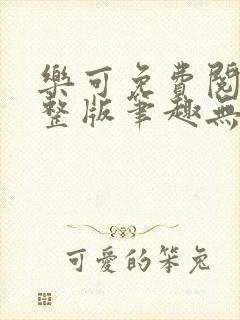 樂可免費閱
整版筆趣無
可愛的笨兔